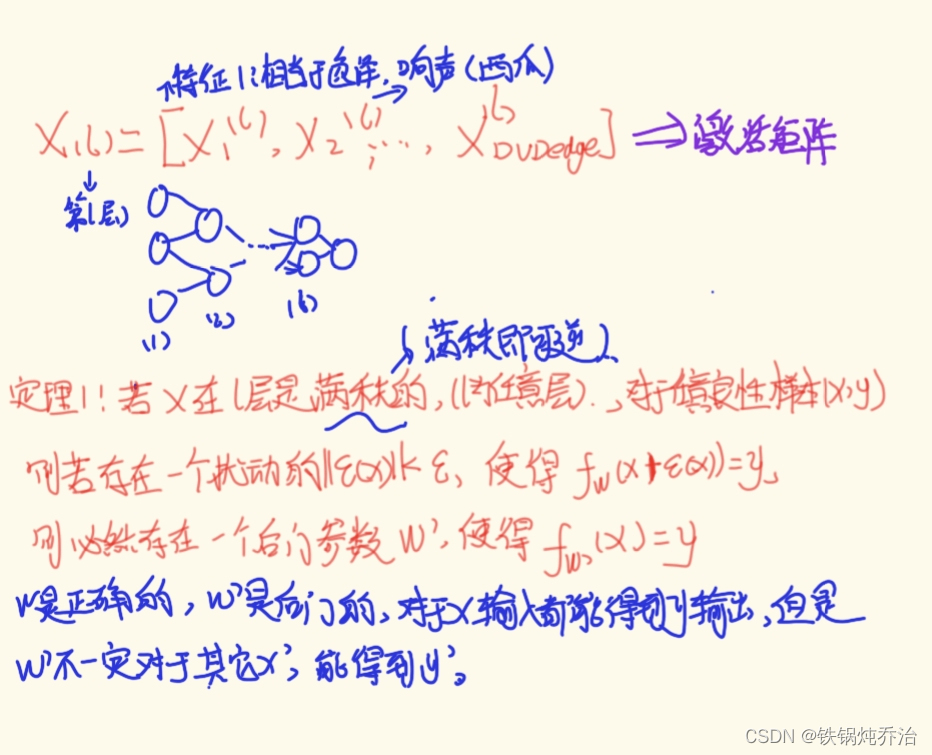 特征1:相当于色泽,响声(西瓜)
X(l)=[X₁⁽ˡ⁾, X₂⁽ˡ⁾, ..., X⁽ˡ⁾DUDedge] ⇒ 激活矩阵
第l层
(1) (2) (l)
满秩即可逆
定理1:若X在l层是满秩的,(l为任意层),对于任意良性样本(x,y)
则若存在一个扰动的||ε(x)||<ε,使得 fw(x+ε(x))=y,
则必然存在一个后门参数W',使得 fw'(x)=y
W是正确的,W'是后门的,对于x输入都能得到y输出,但是
W'不一定对于其它x',能得到y'。
CSDN @铁锅炖乔治